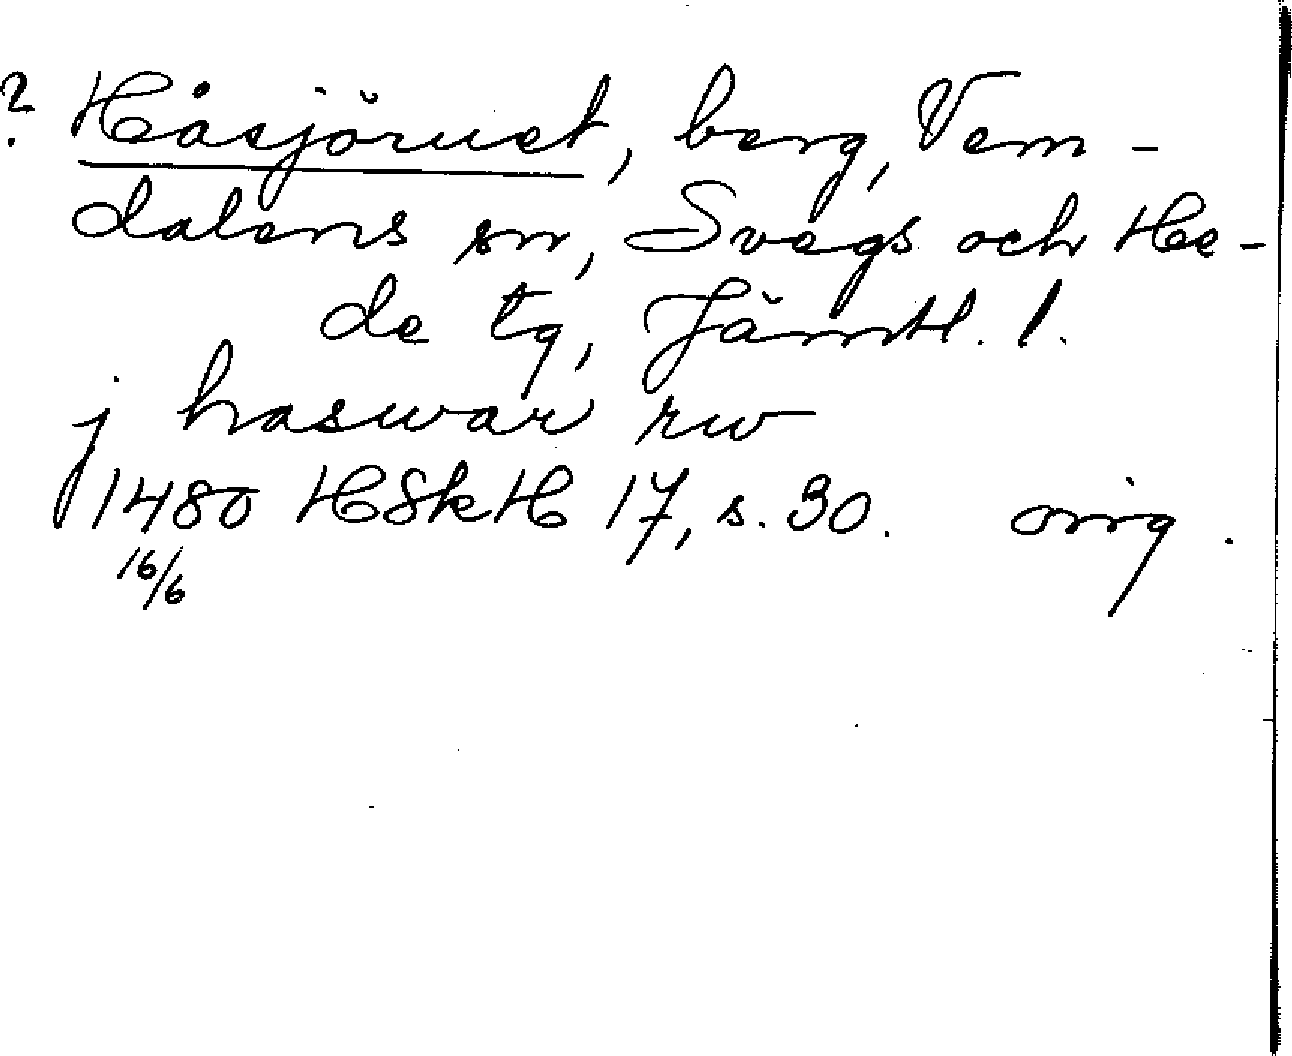 ? Håsjöruet, berg, Vem-
dalens sn, Svegs och He-
de tg, Jämtl. l.
j haswar rw
1480 HSkH 17, s. 30. orig.
16/6